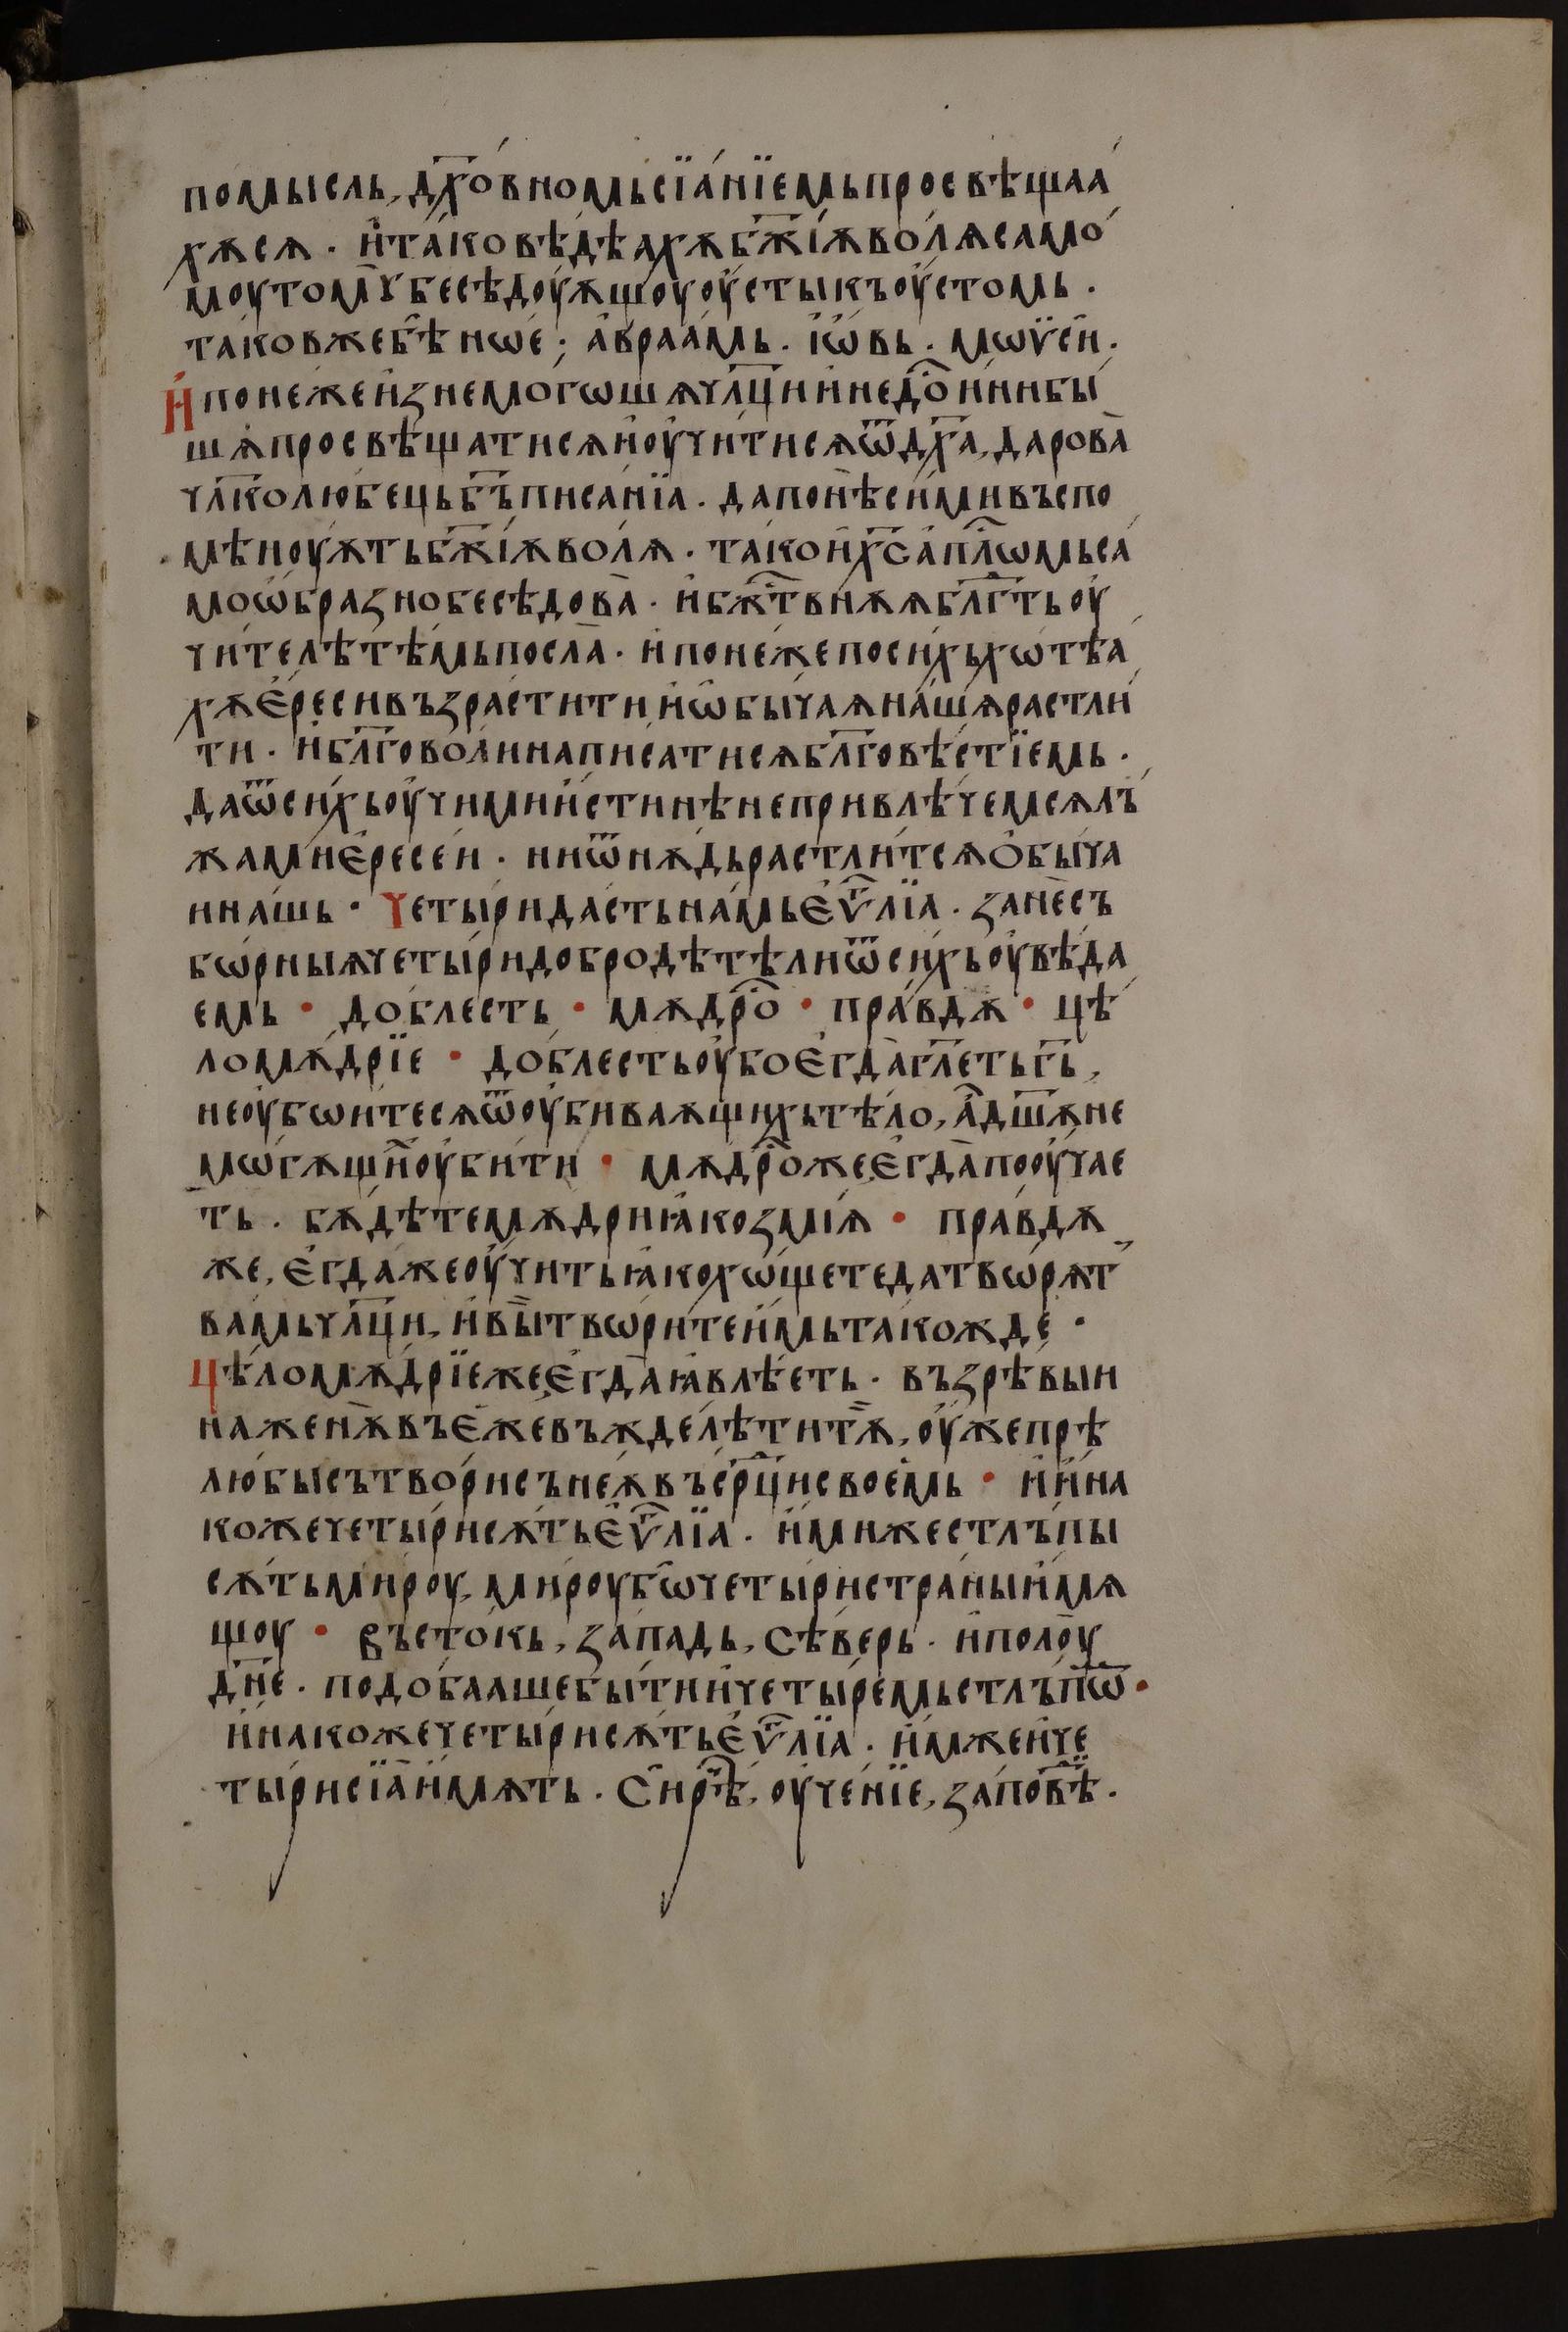 помысль, дх҃о́вномь сїа́нїемь просвѣщаа́
хѫсѧ . и҆ та́ко вѣ́дѣахѫ бж҃і́ѫ во́лѧ само́
моу том̀ꙋ бесѣдоу́ѫщоу оу҆сты къ оу҆стомь .
таковже бѣ̑ нѡ́е ; а҆враа́мь . і҆ѡ́вь . мѡѵ̈се́и .
И҆ поне́же и҆ꙁнемо́гошѧ чл҃ци и҆ недо̑и́ни бы́
шѧ̀ просвѣщатисѧ и҆ оу҆чи́тисѧ ѿ дх҃а, дарова̀
чл҃колю́бець бъ҃ писа́нїа . да понѣ̀ си́ми въспо
мѣноу́ѫть бж҃і́ѫ волѧ . тако и҆ х҃с а҆пл҃ѡмь са
моѡ҆́браꙁно бесѣ́дова̀ . и҆ бж҃тви́ѫѧ блг҃ть оу
чи́телѣ тѣ́мь посла̀ . и҆ поне́же по си́хь хѡтѣ́а
хѫ е҆́реси въꙁрасти́ти и҆ ѡ҆бы́чаѧ на́шѧ растли
ти . и҆ блг҃оволи́ написа́тисѧ блг҃овѣ́стїемь .
да ѿ си́хь оу҆чими и҆́стинѣ не привлѣче́мсѧ лъ́
жами е҆ре́сеи . ни ѿнѫдь растли́тсѧ о҆бы́ча
и на́шь . Четы́ри да́сть на́мь е҆ѵⷢ҇лїа . ꙁанѐ съ
бѡ́рныѧ четы́ри добродѣтѣли ѿ си́хь оу҆вѣ́да
емь • до́блесть • мѫдро̑ • пра́вдѫ • цѣ
ломѫ́дрїе • до́блесть оу҆бо е҆гда̀ гл҃еть гь҃,
не оу҆бѡитесѧ ѿ оу҆бива́ѫщихь тѣ́ло, а҆ дш҃ѫ не
мѡгѫщи̑ оу҆би́ти • мѫдро̑ же е҆гда̀ поо̑у́чае
ть . бѫ́дѣте мѫ́дри ꙗ҆́ко ꙁмі́ѧ • пра́вдѫ
же, е҆гда́ же оу҆чи́ть ꙗ҆́ко хо́щете да твѡрѧт
вамь чл҃ци, и҆ вы̀ твѡри́те и҆мь та́кожде .
Цѣломѫ́дрїе же е҆гда̀ ꙗ҆влѣ́еть . въꙁрѣ́выи
на женѫ̀ въ е҆́же въжделѣ́ти тѫ̀, оу҆же прѣ
любы́ сътвори́ съ не́ѫ въ ср҃ци свое́мь • и҆ и҆на
коже четы́ри сѫ́ть е҆ѵⷢ҇лїа . и҆́миже стлъпы
сѫ́ть ми́роу, ми́роу бѡ̑ четы́ри страны и҆мѧ
щоу • Въсто́кь, ꙁа́падь, Сѣ́верь . и҆ полоу̀
дн҃е . подобаа́ше бы́ти и҆ четы́ремь стлъпѡ̑м •
и҆ и҆накоже четы́ри сѫ́ть е҆ѵⷢ҇лїа . и҆́мже и҆ че
ты́ри сїа̀ и҆́мѫть . Сирѣ̑, оу҆че́нїе, ꙁа́повѣ̑ .